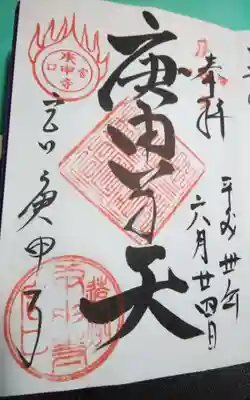 奉拝
平成卅年
六月廿四日
庚申尊天
宮口庚申寺
宮口
庚申寺